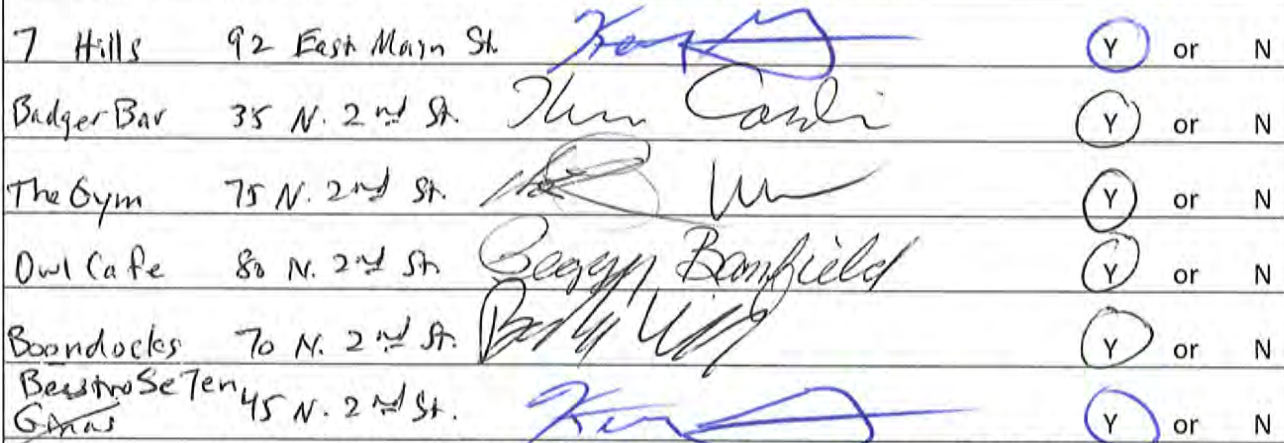 7 Hills 92 East Main St. Y or N
Badger Bar 35 N. 2nd St. Y or N
The Gym 75 N. 2nd St. Y or N
Owl Cafe 80 N. 2nd St. Peggy Banfield Y or N
Boondocks 70 N. 2nd St. Y or N
BeastroSe7en
Ginas 45 N. 2nd St. Y or N